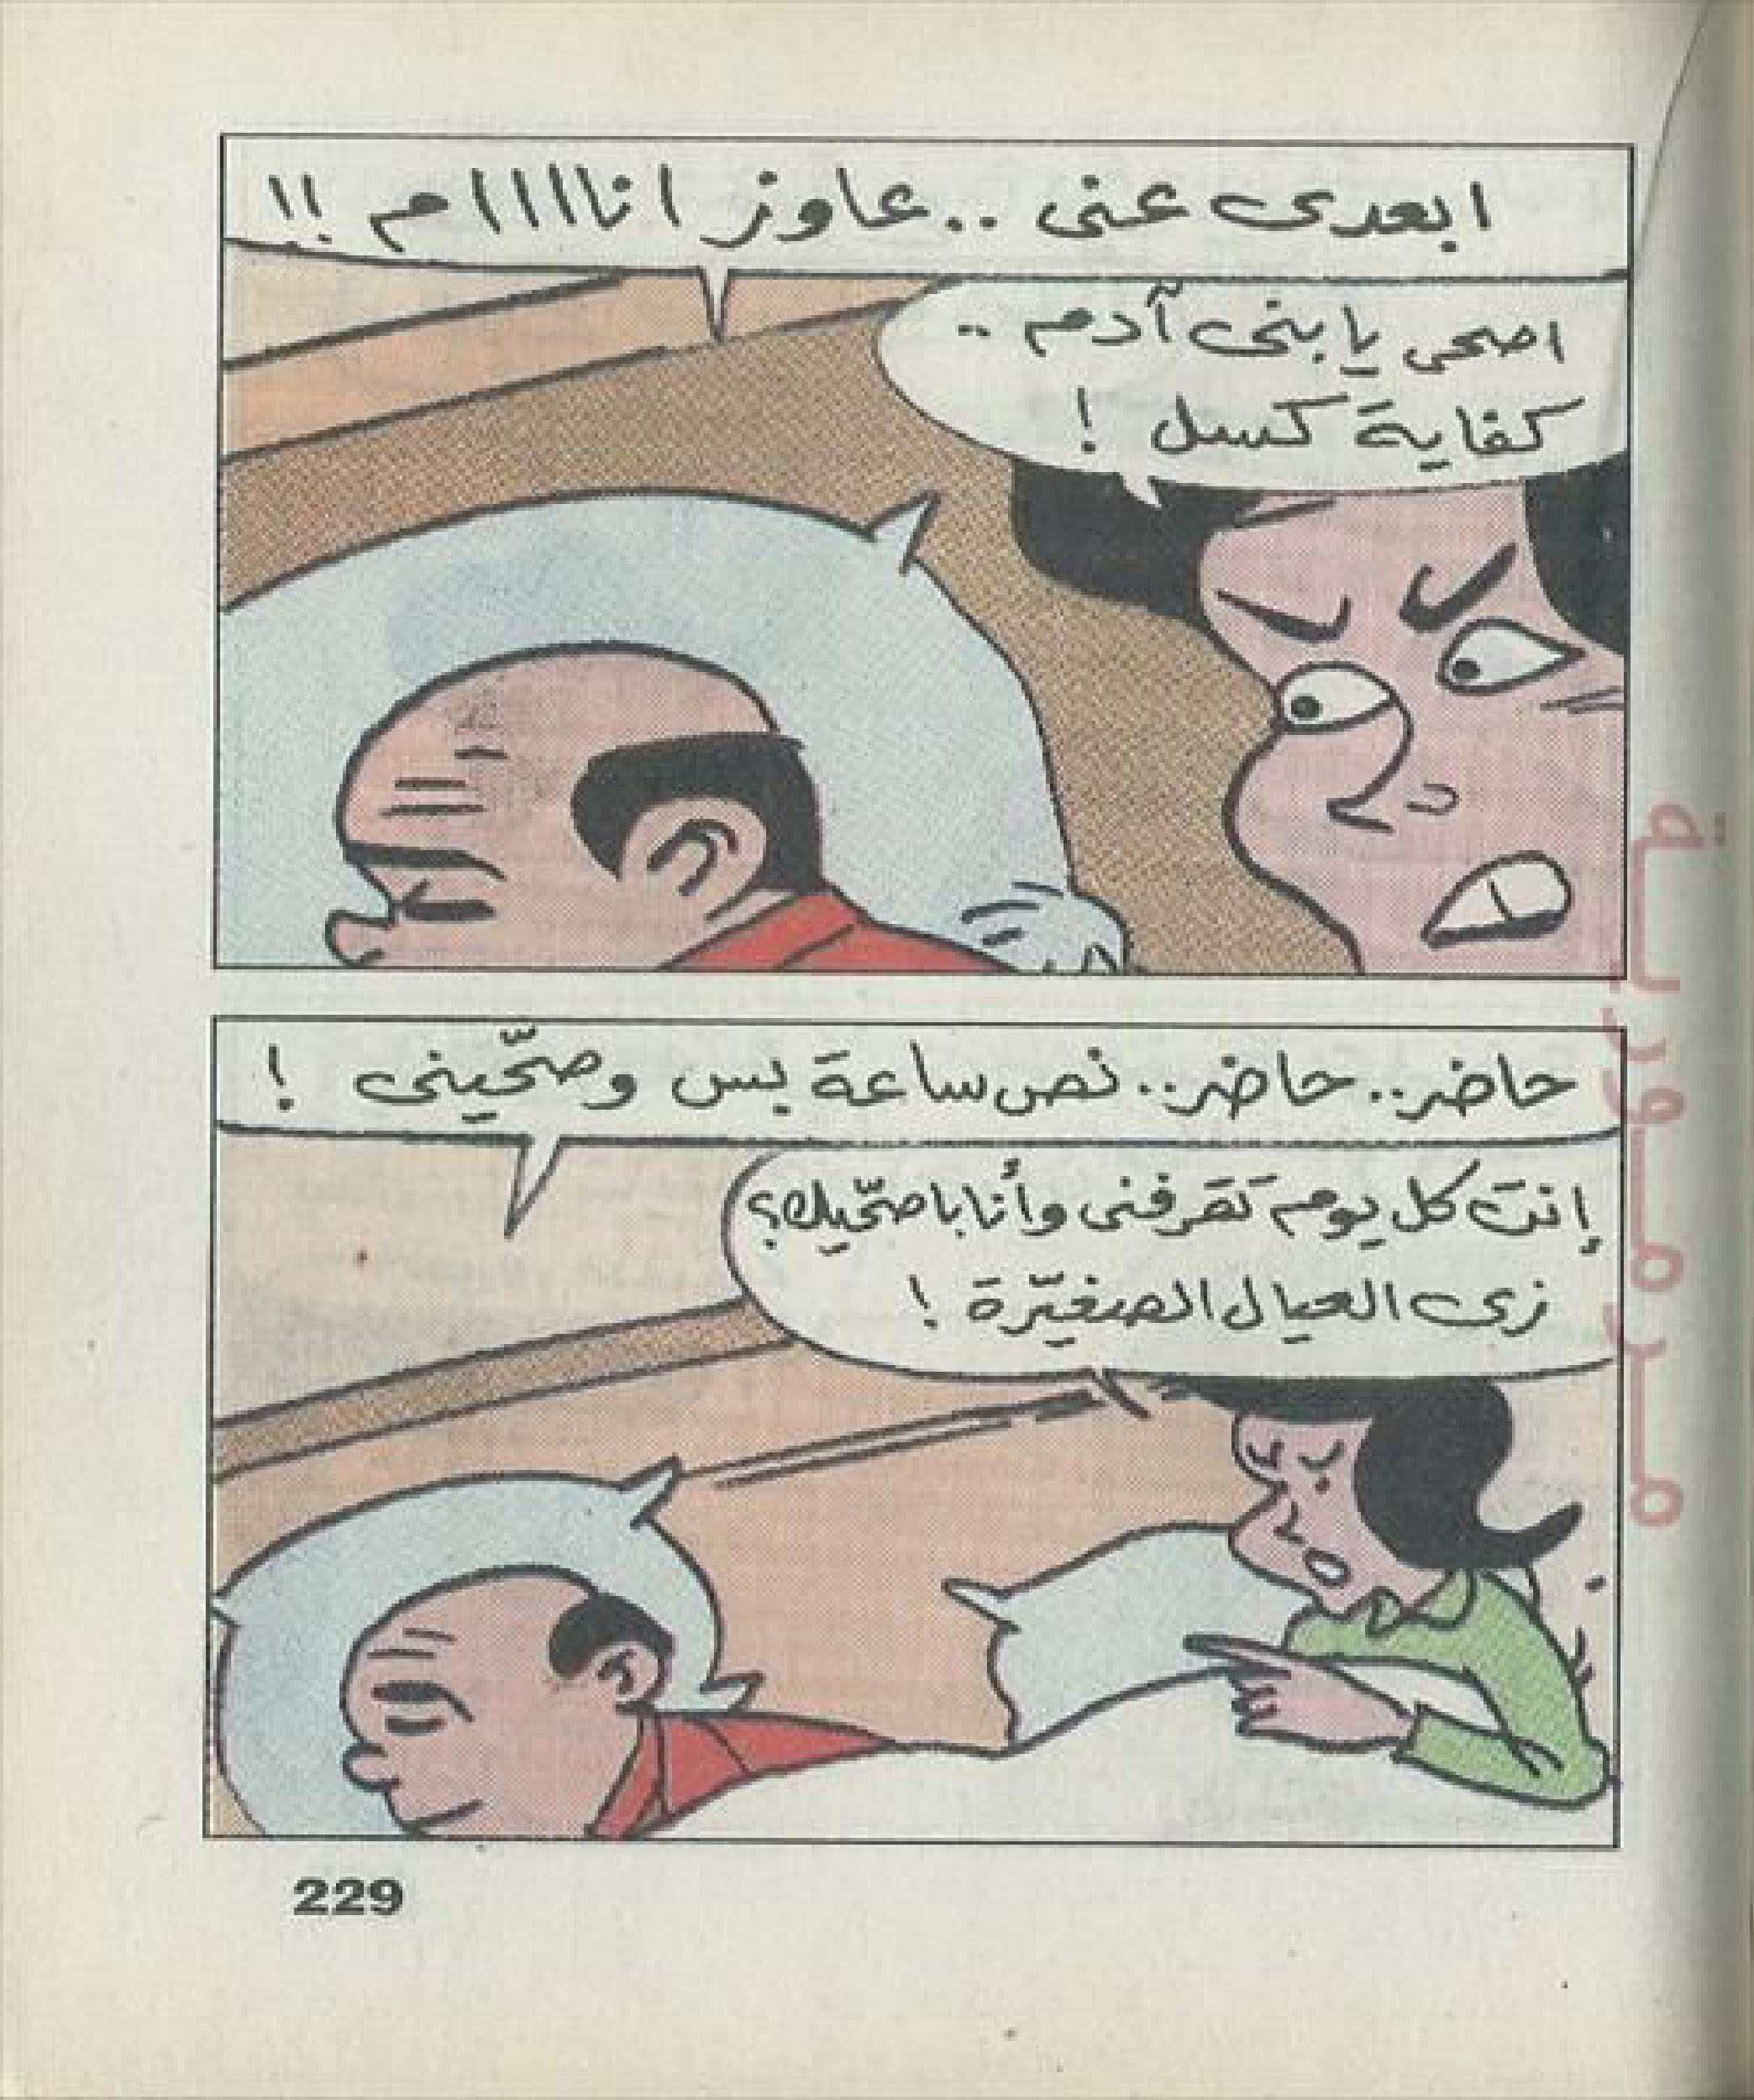 ابعدى عنى .. عاوز انااااام !!
اصحى يا بنى آدم ..
كفاية كسل !
حاضر.. حاضر.. نص ساعة بس وصحّينى !
إنت كل يوم تقرفنى وأنا باصحّيك؟
زى العيال الصغيّرة !
229
مرمورية